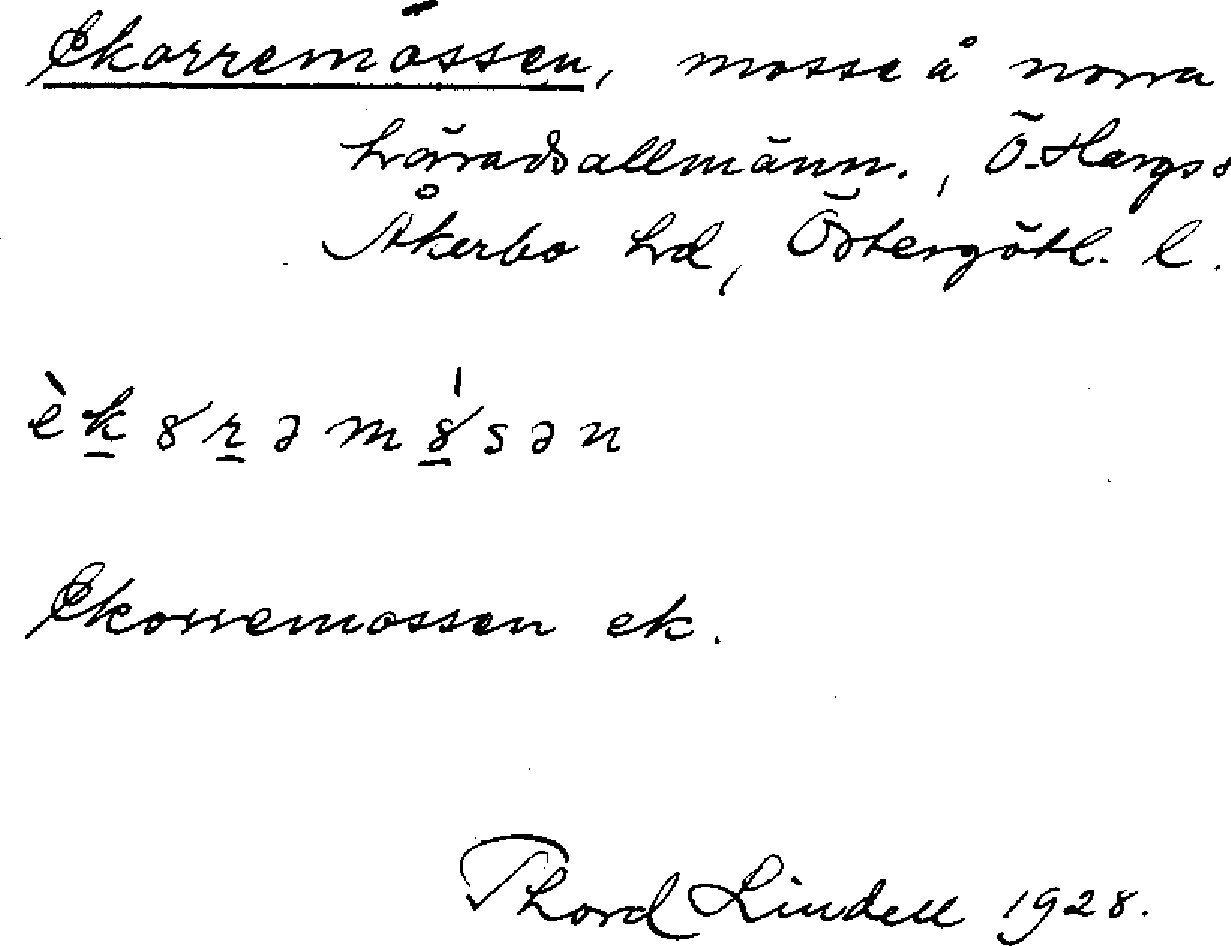 Ekorremossen, mosse å norra
häradsallmänn., Ö. Hargs s
Åkerbo hd, Östergötl. l.
èkȣrəmȣ́sən
Ekorremossen ek.
Thord Lindell 1928.